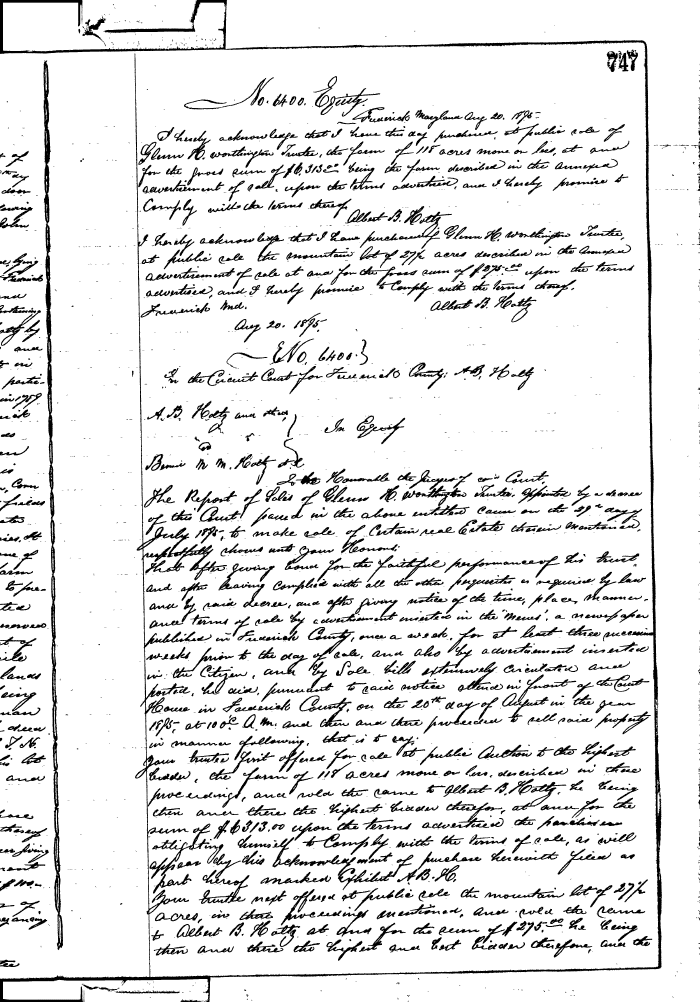 747
No. 6400. Equity.
Frederick Maryland Aug 20. 1895
I hereby acknowledge that I have this day purchased, at public sale of
Glenn H. Worthington Trustee, the farm of 118 acres more or less, at and
for the gross sum of $6,313.00 being the farm described in the annexed
advertisement of sale, upon the terms advertised, and I hereby promise to
Comply with the terms thereof.
Albert B. Holtz
I hereby acknowledge that I have purchased of Glenn H. Worthington Trustee,
at public sale the mountain lot of 27½ acres described in the annexed
advertisement of sale at and for the gross sum of $275.00 upon the terms
advertised, and I hereby promise to Comply with the terms thereof.
Frederick Md. Albert B. Holtz
Aug 20. 1895.
No. 6400.
In the Circuit Court for Frederick County. A.B. Holtz
A. B. Holtz and
In Equity
M. M. Holtz
To the Honorable the Judges of Court,
The Report of Sales of Glenn H. Worthington Trustee. Appointed by a decree
of this Court passed in the above entitled cause on the 29th day of
July 1895, to make sale of Certain real Estate therein mentioned,
respectfully shows unto your Honors.
That after giving bond for the faithful performance of his trust,
and after having complied with all the other requisites as required by law
and by said decree, and after giving notice of the time, place, manner
and terms of sale by advertisement inserted in the "News", a newspaper
published in Frederick County, once a week, for at least three successive
weeks prior to the day of sale, and also by advertisement inserted
in the Citizen, and by Sale bills extensively circulated and
posted, he did, pursuant to said notice attend in front of the Court
House in Frederick County, on the 20th day of August in the year
1895, at A.M. and then and there proceeded to sell said property
in manner following, that is to say:
Your trustee first offered for sale at public Auction to the highest
bidder, the farm of 118 acres more or less, described in these
proceedings, and sold the same to Albert B. Holtz, he being
then and there the highest bidder therefor, at and for the
sum of $6313.00 upon the terms advertised the purchaser
obligating himself to Comply with the terms of sale, as will
appear by his acknowledgement of purchase herewith filed as
part hereof marked Exhibit A.B.H.
Your trustee next offered at public sale the mountain lot of 27½
acres, in these proceedings mentioned, and sold the same
to Albert B. Holtz at and for the sum of $275.00 he being
then and there the highest and best bidder therefore, and the